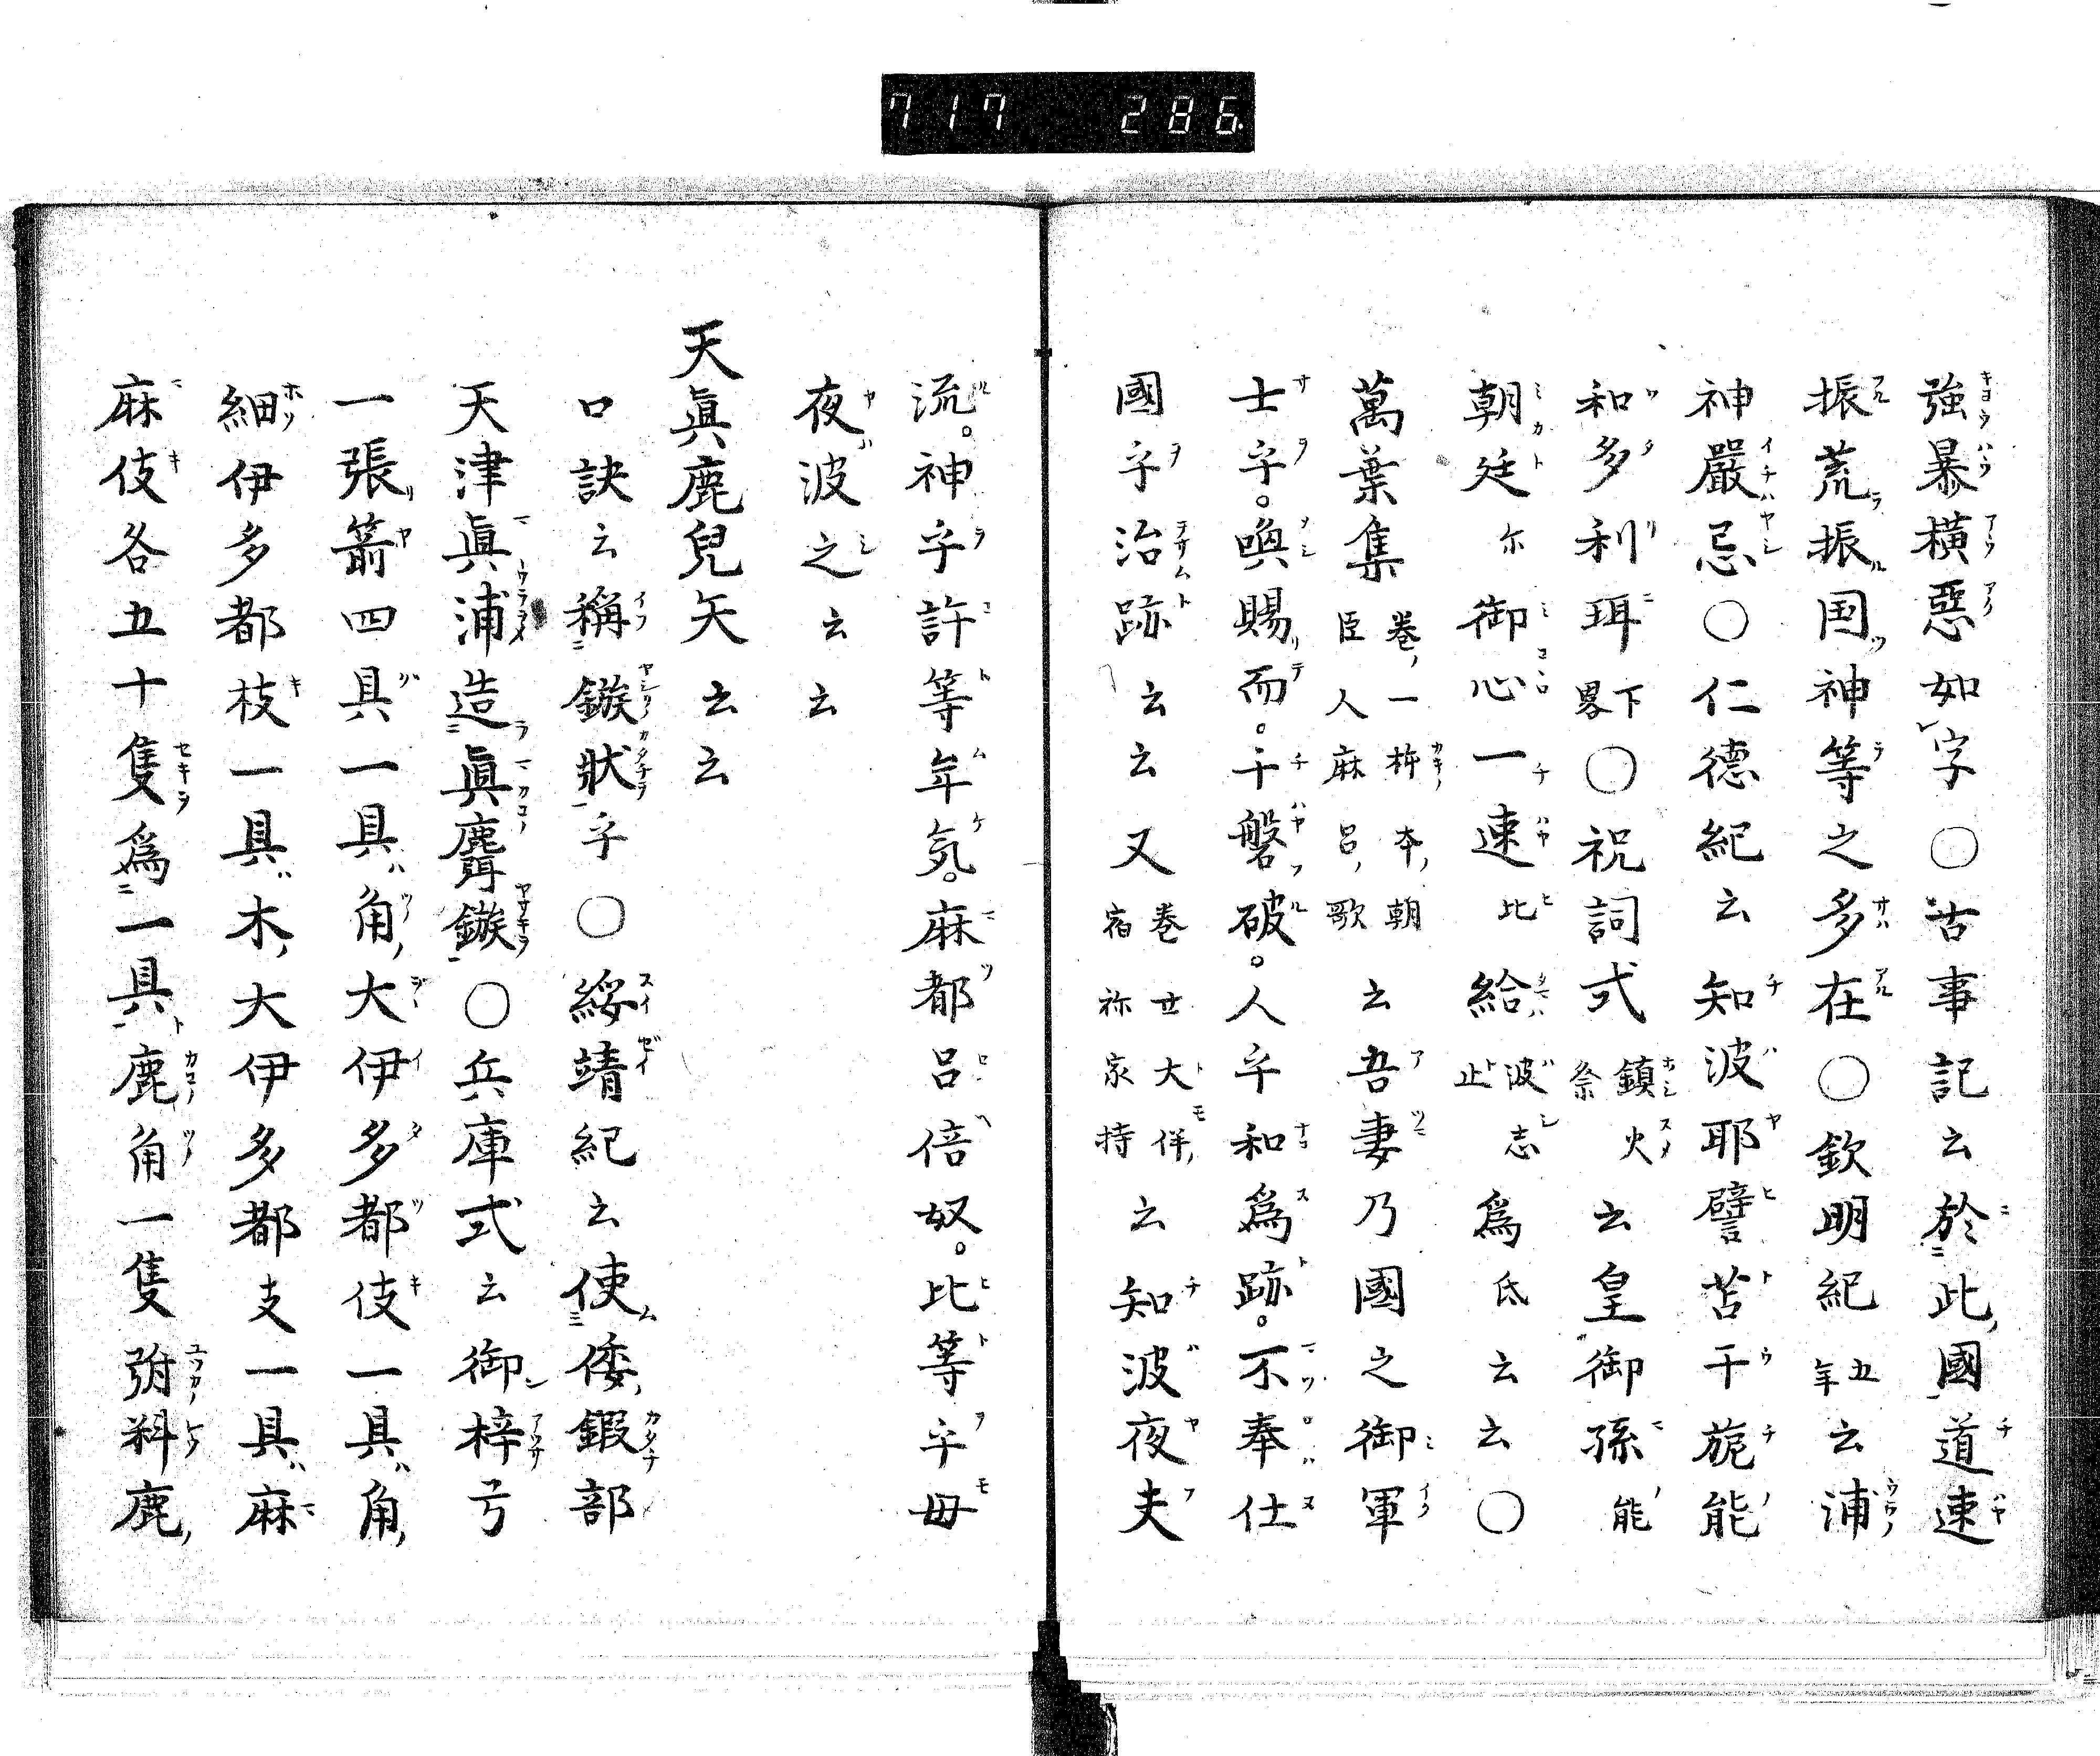 717 286
強暴横惡如字〇古事記云於此國道速
振荒振国神等之多在〇欽明紀五年云浦
神嚴忌〇仁德紀云知波耶譬苫于旎能
和多利珥下畧〇祝詞式鎮火祭云皇御孫能
朝廷尓御心一速比給波志止為氐云云〇
萬葉集卷一柿本朝臣人麻呂歌云吾妻乃國之御軍
士乎。喚賜而。千磐破。人乎和為跡。不奉仕
國乎治跡云云又卷廿大伴宿祢家持云知波夜夫
流。神乎許等牟気。麻都呂倍奴。比等乎毋
夜波之云云
天眞鹿兒矢云云
口訣云稱鏃狀乎〇綏靖紀云使倭鍜部
天津眞浦造眞麛鏃〇兵庫式云御梓弓
一張箭四具一具角大伊多都伎一具角
細伊多都枝一具木大伊多都支一具麻
麻伎各五十隻為一具鹿角一隻弣料鹿